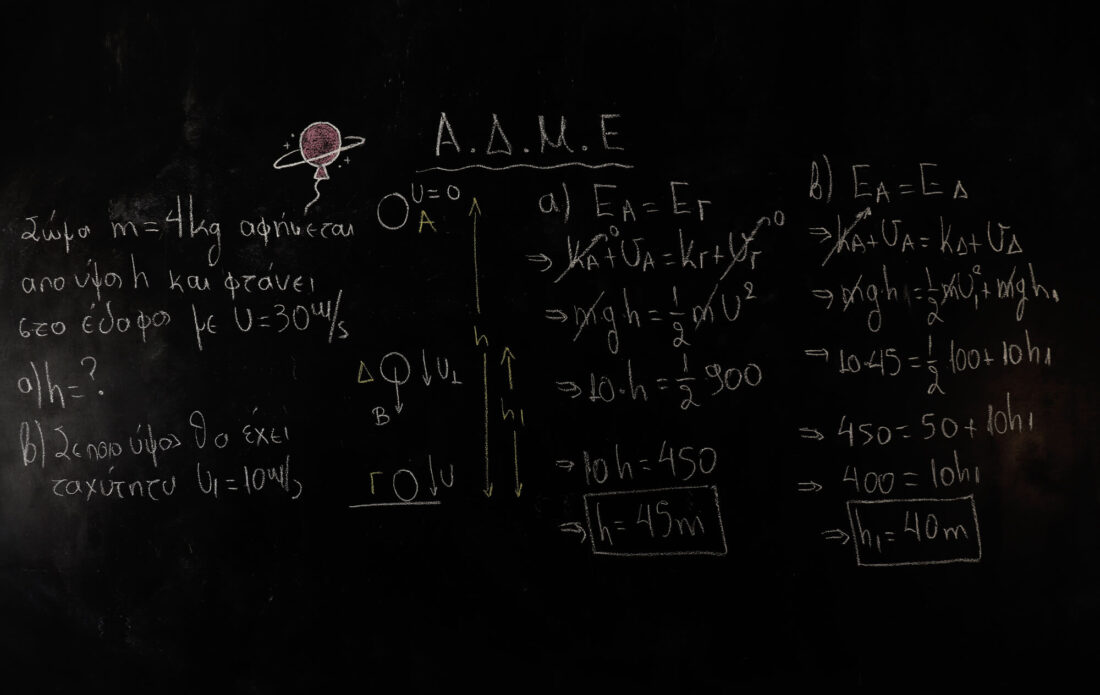 Α.Δ.Μ.Ε
Σώμα m=4kg αφήνεται
από ύψος h και φτάνει
στο έδαφος με υ=30m/s
α) h=?
β) Σε ποιο ύψος θα έχει
ταχύτητα υ1=10m/s
υ=0
Α
h
Δ
υ1
Β
h1
Γ
υ
α) EΑ=EΓ
⇒ KΑ^0+UΑ=KΓ+UΓ^0
⇒ mgh=1/2 mυ²
⇒ 10·h=1/2 900
⇒ 10h=450
⇒ h=45m
β) EΑ=EΔ
⇒ KΑ+UΑ=KΔ+UΔ
⇒ mgh=1/2 mυ1²+mgh1
⇒ 10·45=1/2 100+10h1
⇒ 450=50+10h1
⇒ 400=10h1
⇒ h1=40m